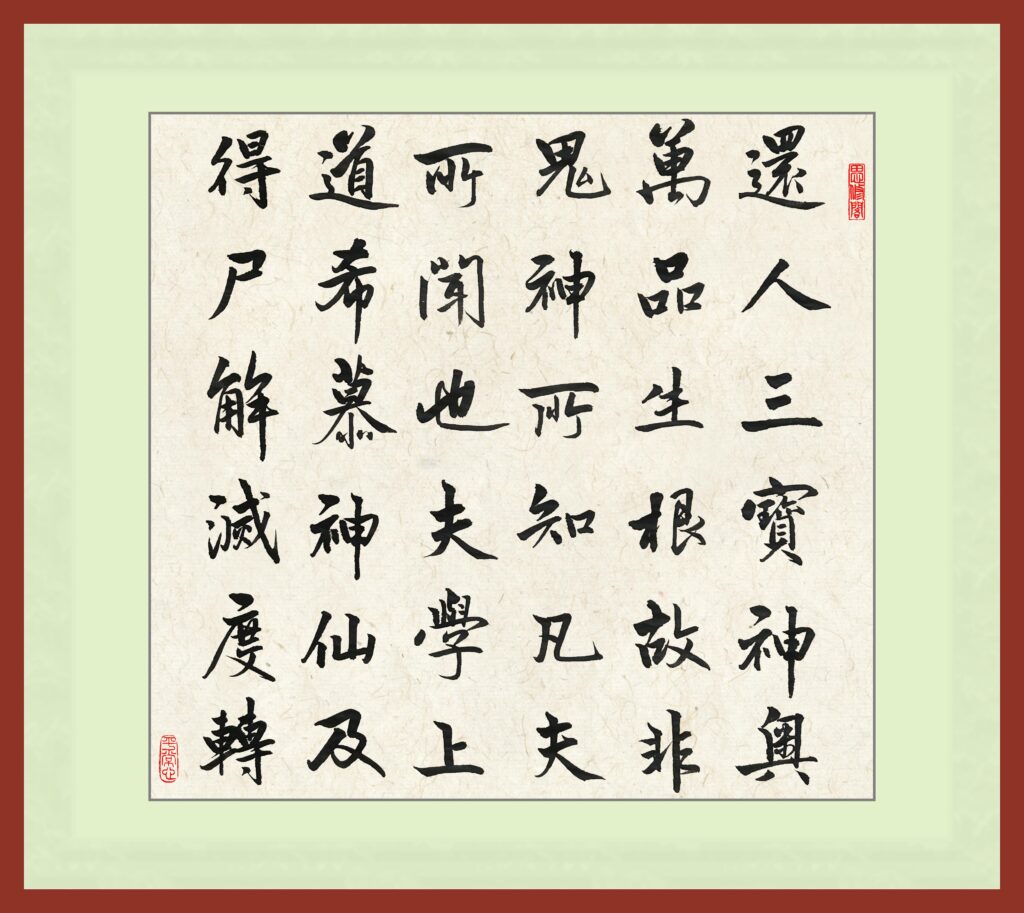 還人三寶神奧
萬品生根故非
鬼神所知凡夫
所聞也夫學上
道希慕神仙及
得尸解滅度轉